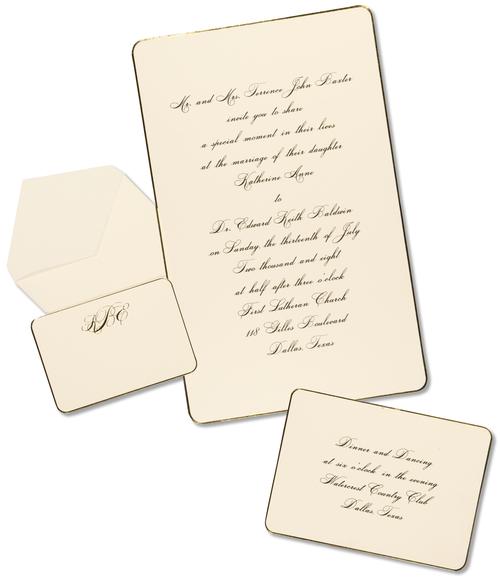 Mr. and Mrs. Terrence John Baxter
invite you to share
a special moment in their lives
at the marriage of their daughter
Katherine Anne
to
Dr. Edward Keith Baldwin
on Sunday, the thirteenth of July
Two thousand and eight
at half after three o'clock
First Lutheran Church
118 Gilles Boulevard
Dallas, Texas
KBE
Dinner and Dancing
at six o'clock in the evening
Watercrest Country Club
Dallas, Texas